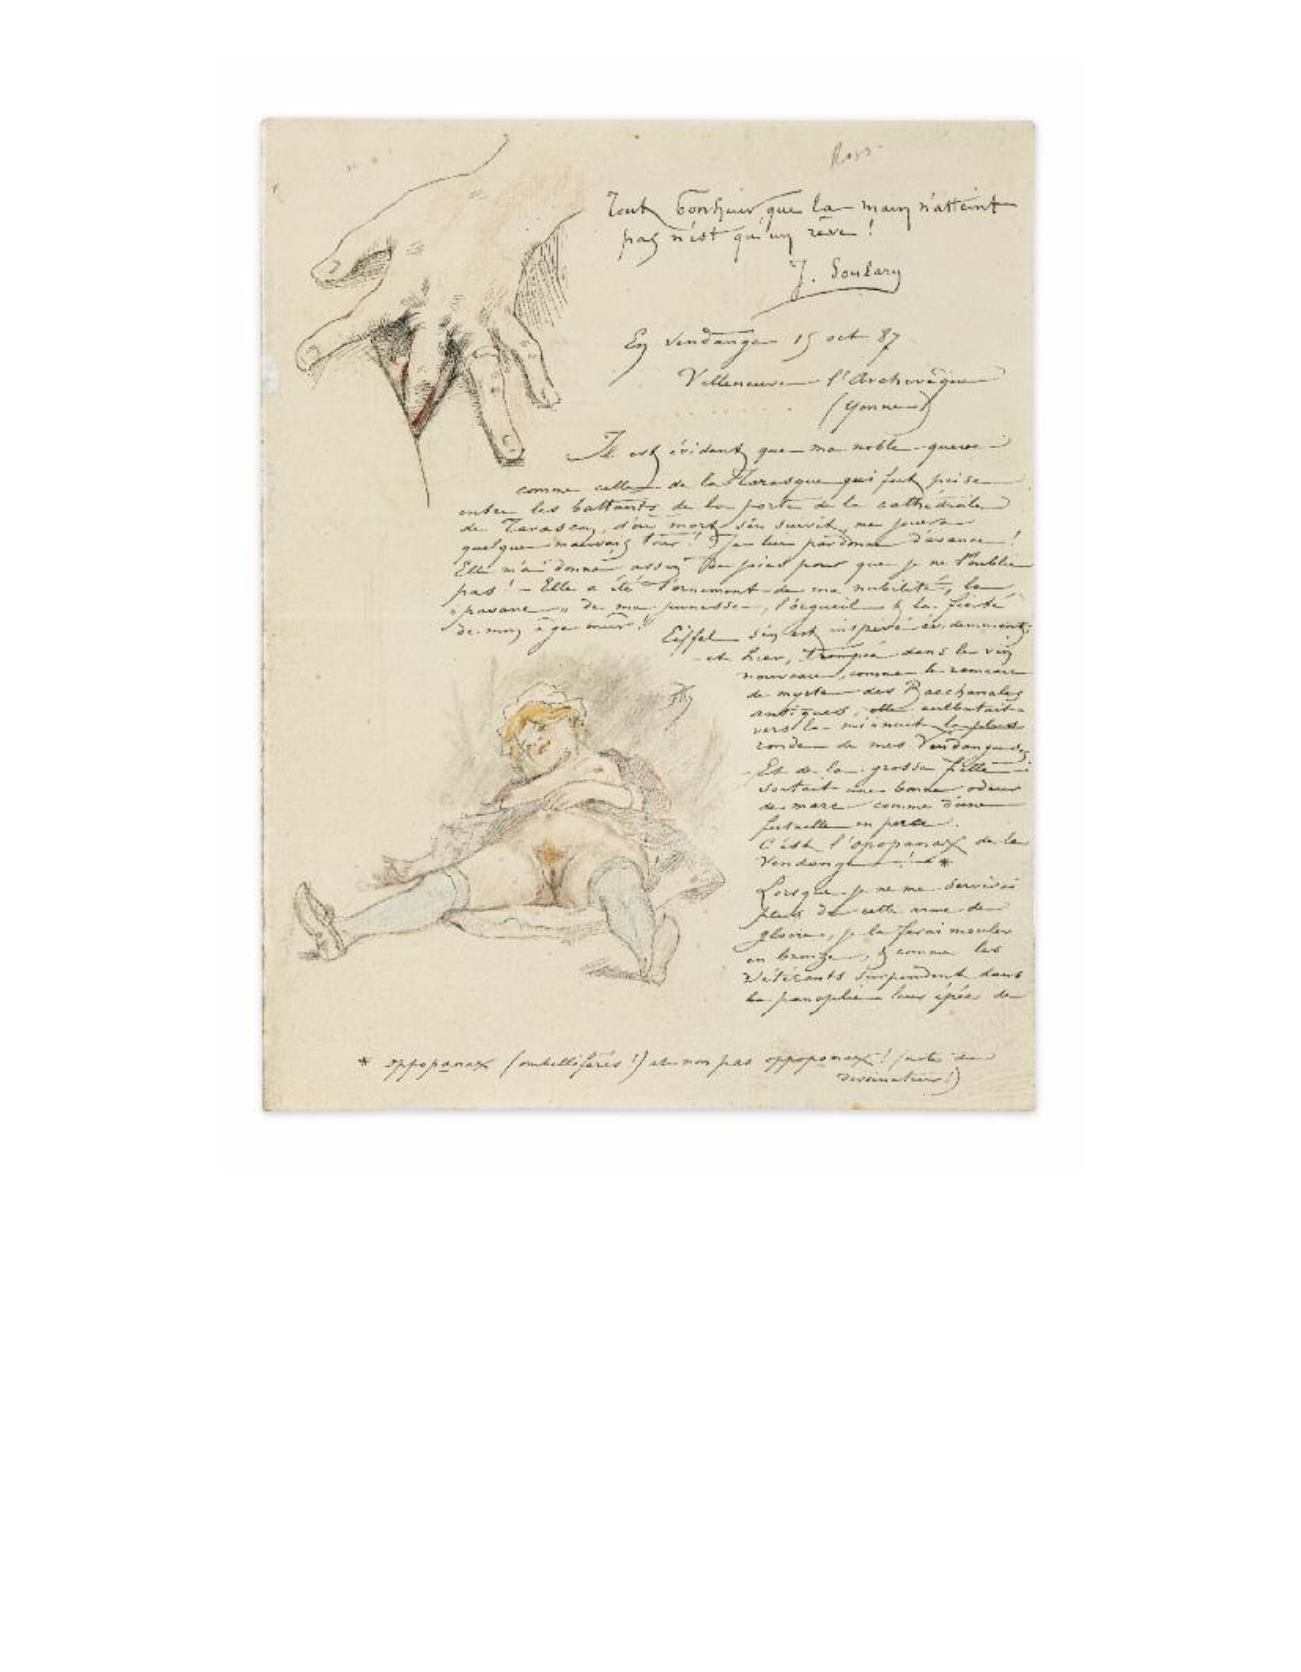 Rops
Tout bonheur que la main n'atteint
pas n'est qu'un rêve !
J. Soulary
En vendange 15 oct 87
Villeneuve l'Archevêque
(Yonne)
Il est évident que ma noble queue
comme celle de la Tarasque qui fut prise
entre les battants de la porte de la cathédrale
de Tarascon, d'où mort s'en suivit, me jouera
quelque mauvais tour ! Je lui pardonne d'avance !
Elle m'a donné assez de joies pour que je ne l'oublie
pas ! – Elle a été l'ornement de ma nubilité, la
« pavane » de ma jeunesse, l'orgueil & la fierté
de mon âge mûr !
Eiffel s'en est inspiré évidemment,
et hier, trempée dans le vin
nouveau, comme le rameau
de myrte des Bacchanales
antiques, elle culbutait
vers la minuit la plus
ronde de mes Vendangeuses
Et de la grosse fille
sortait une bonne odeur
de marc comme d'une
futaille en perce.
C'est l'opopanax de la
Vendange ! *
Lorsque je ne me servirai
plus de cette arme de
gloire, je la ferai mouler
en bronze, & comme les
Vétérants suspendent dans
la panoplie leur épée de
* oppopanax (ombellifères !) et non pas oppoponax ! (note du
dessinateur !)